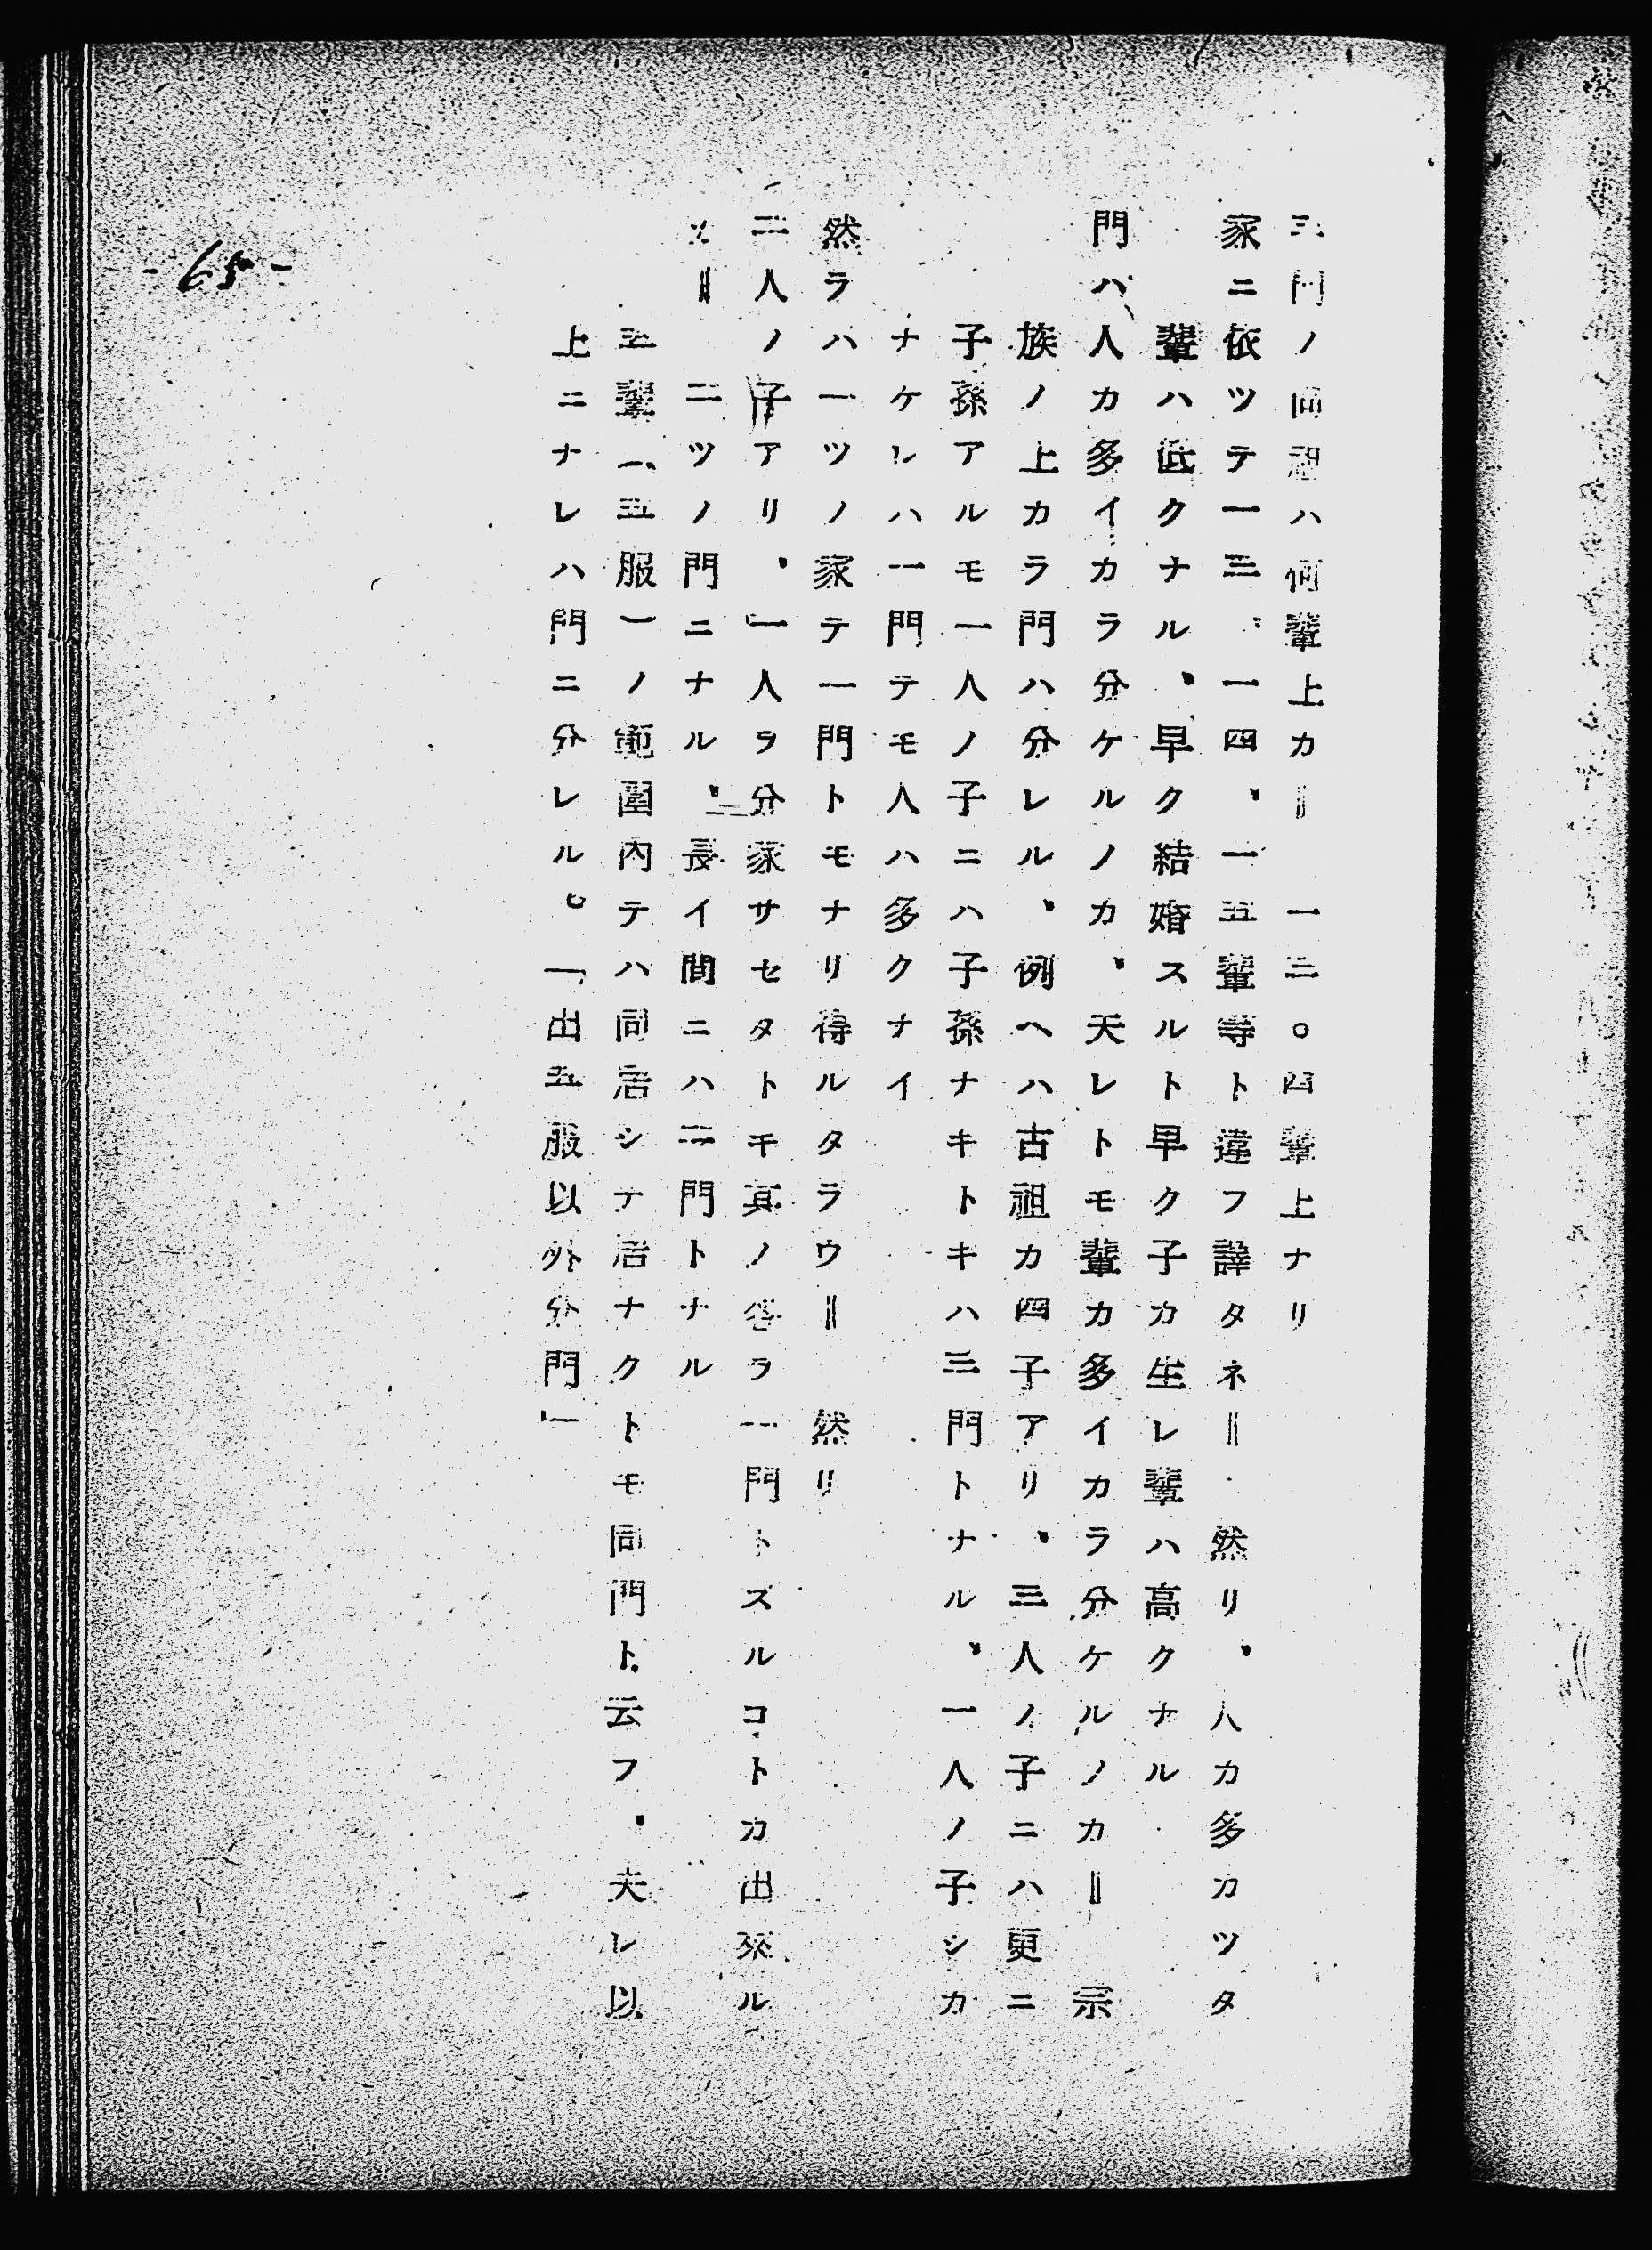 三門ノ同祖ハ何輩上カ＝　一三〇四輩上ナリ
家ニ依ツテ一三、一四、一五輩等ト違フ譯タネ＝　然リ、人カ多カツタ
輩ハ低クナル、早ク結婚スルト早ク子カ生レ輩ハ高クナル
門ハ人カ多イカラ分ケルノカ、夫レトモ輩カ多イカラ分ケルノカ＝　宗
族ノ上カラ門ハ分レル、例ヘハ古祖カ四子アリ、三人ノ子ニハ更ニ
子孫アルモ一人ノ子ニハ子孫ナキトキハ三門トナル、一人ノ子シカ
ナケレハ一門テモ人ハ多クナイ
然ラハ一ツノ家テ一門トモナリ得ルタラウ＝　然リ
二人ノ子アリ、一人ヲ分家サセタトモ其ノ各ヲ一門トスルコトカ出來ル
＝　二ツノ門ニナル、長イ間ニハ二門トナル
五輩（五服）ノ範圍內テハ同居シテ居ナクトモ同門ト云フ、夫レ以
上ニナレハ門ニ分レル。「出五服以外分門」
-65-